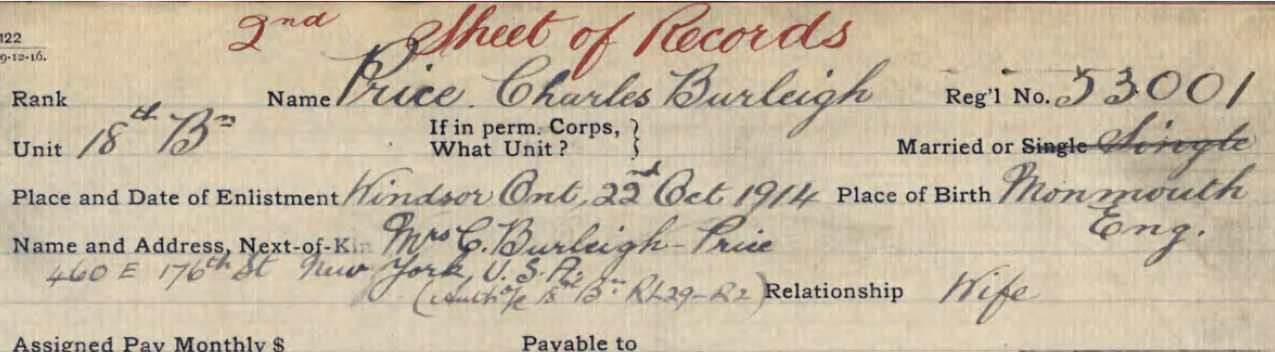 2nd Sheet of Records
122
9-12-16.
Rank Name Price. Charles Burleigh Reg'l No. 53001
Unit 18th Bn If in perm. Corps, What Unit? } Married or Single Single
Place and Date of Enlistment Windsor Ont, 22nd Oct 1914 Place of Birth Monmouth Eng.
Name and Address, Next-of-Kin Mrs C. Burleigh-Price
460 E 176th St New York, U.S.A.
18th Bn RL29-R2) Relationship Wife
Assigned Pay Monthly $ Payable to